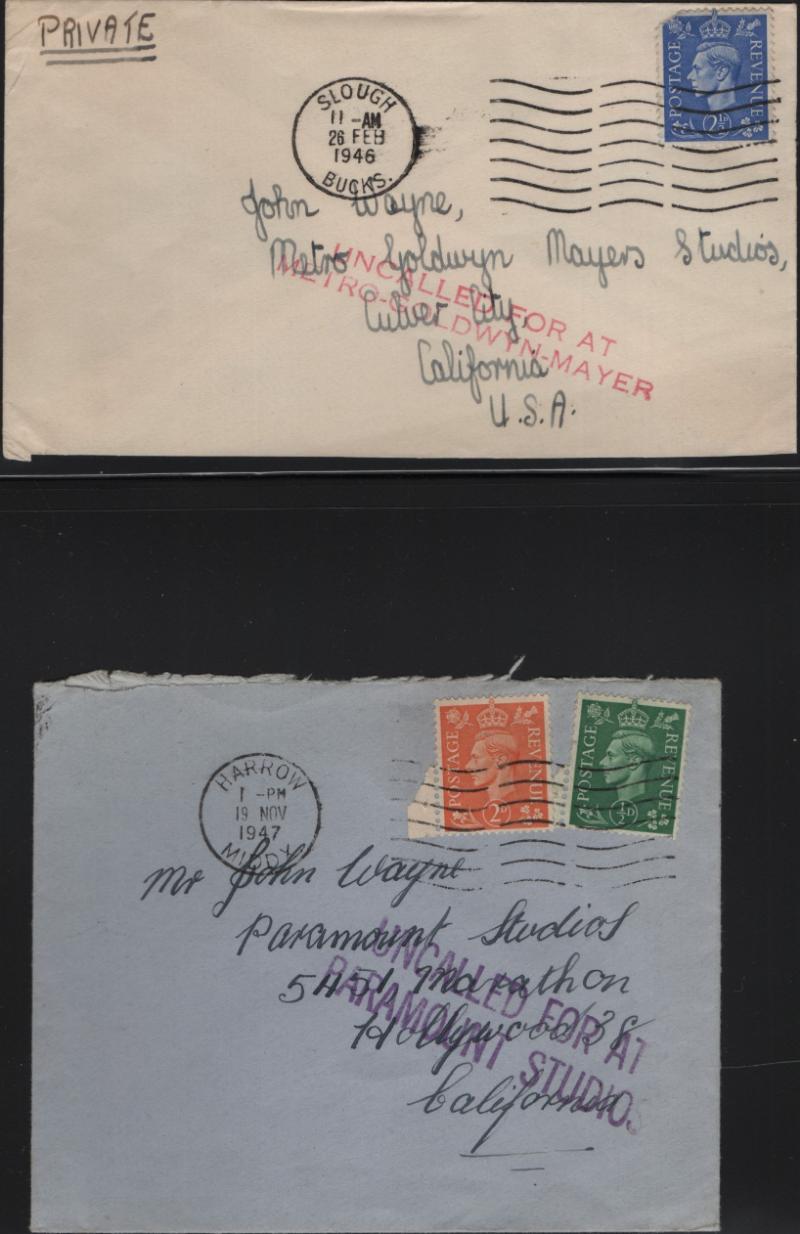 PRIVATE
POSTAGE REVENUE
2½D
SLOUGH
11-AM
26 FEB
1946
BUCKS.
John Wayne,
Metro Goldwyn Mayers Studios,
Culver City,
California
U.S.A.
UNCALLED FOR AT
METRO-GOLDWYN-MAYER
POSTAGE REVENUE
2D
POSTAGE REVENUE
½D
HARROW
1-PM
19 NOV
1947
MIDDX
Mr John Wayne
Paramount Studios
5451 Marathon
Hollywood/38
California
UNCALLED FOR AT
PARAMOUNT STUDIOS